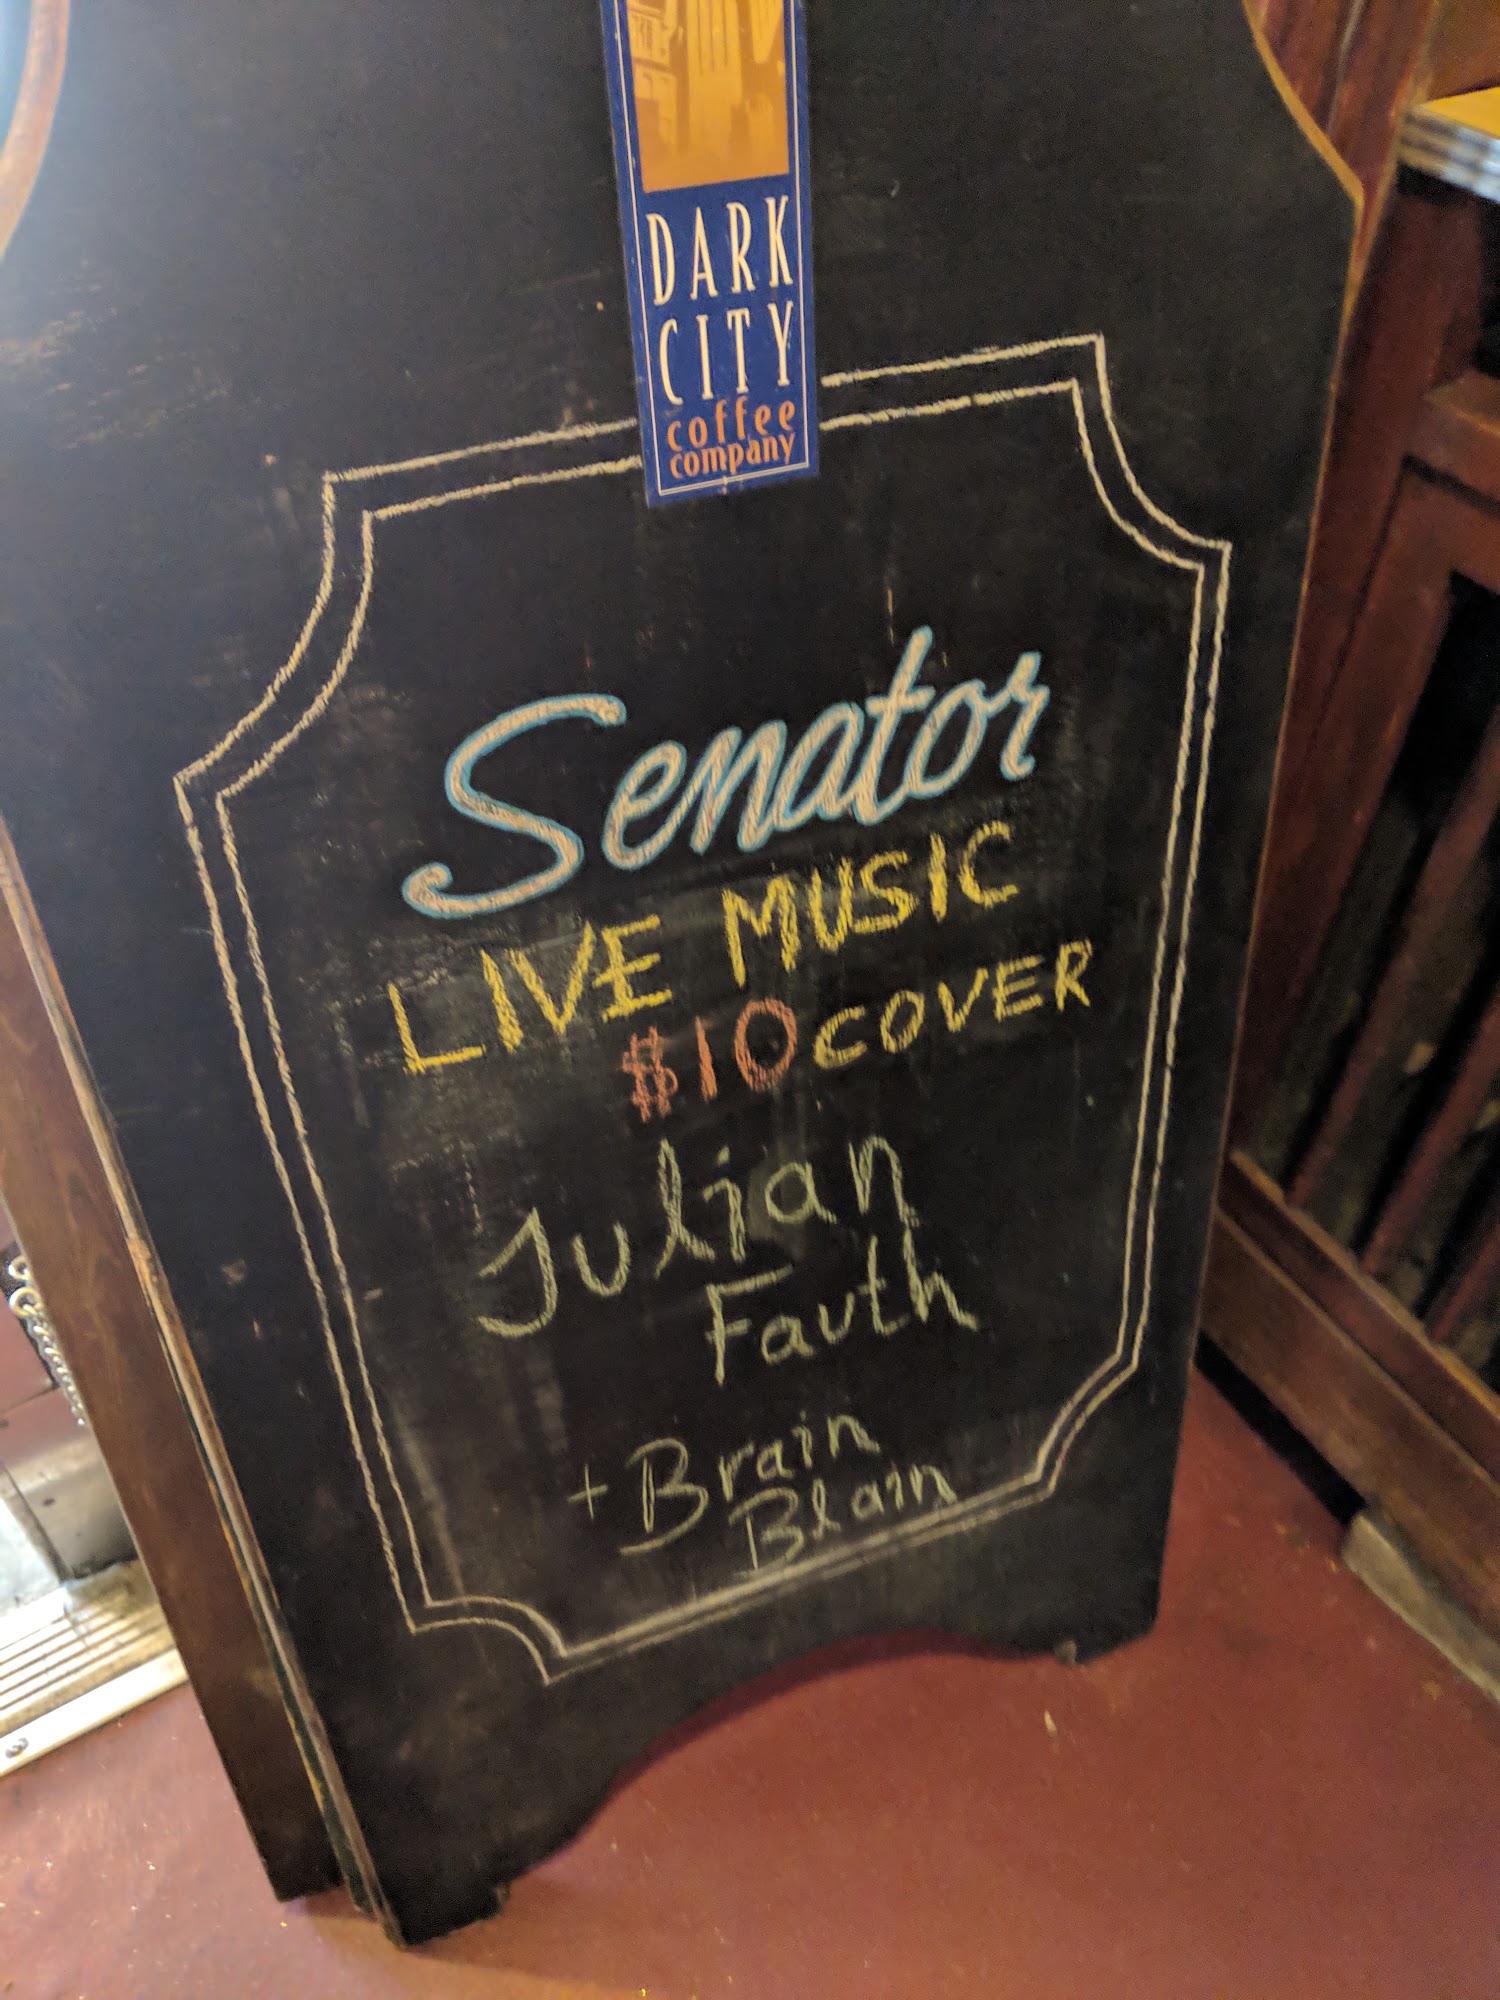 DARK
CITY
coffee
company
Senator
LIVE MUSIC
$10 COVER
Julian
Fauth
+ Brain
Blain